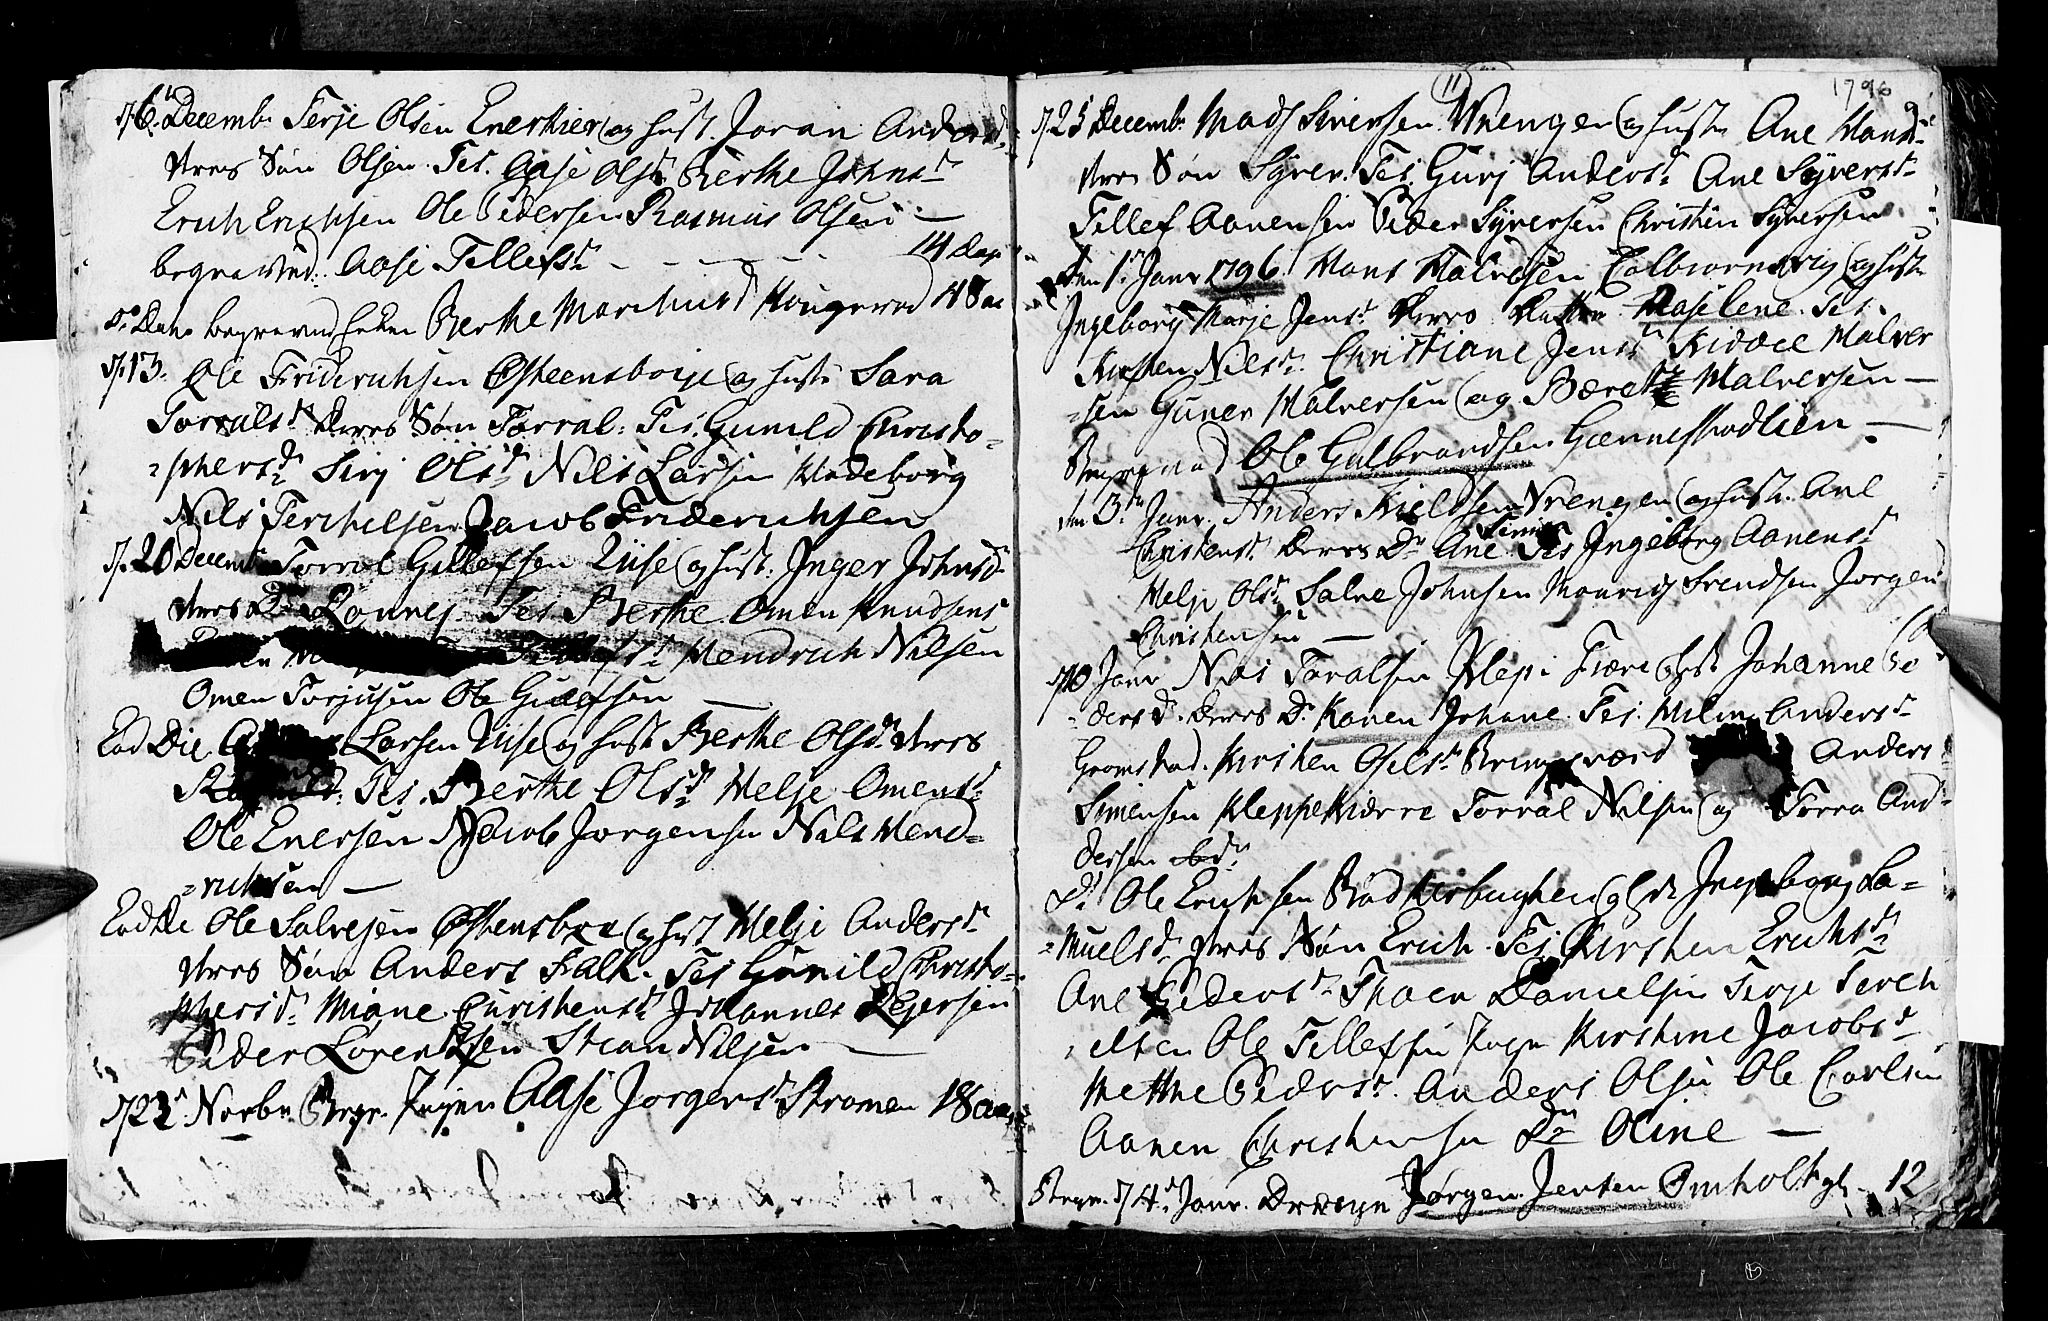 d 6t Decemb: Terje Olsen Enerkier og hust. Joran Anders d.
deres Søn Olsen. Tes. Aase Olsd Berthe Johnsd
Erich Erichsen Ole Pedersen Rasmus Olsen —
begraved: Aase Tellefsd — — — 14 dag
do Dato begraved Berthe Marchusd Kougerød 48 aar
d. 13. Ole Friderichsen Østeensboije og hust: Sara
Torralsd deres Søn Torral: Tes. Gunild Christo=
=phersd Sirj Olsd Nils Larsen Hedeborg
Nils Terchelsen Jacob Friderichsen
d. 20 Decemb Torral Gellefsen Viise og hust: Inger Johnsd
deres D Ronnej Tes. Berthe Omen Knudsens
Hendrich Nilsen
Omen Torjusen Ole Gulefsen —
Eod Die Larsen Viise og hust Berthe Olsd deres
Tes. Berthe Olsd Helje Omensd
Ole Enersen Jacob Jørgensen Nils Hend=
=richsen —
Eod Die Ole Salvesen Østensboe og hust Helje Andersd
deres Søn Anders Falk. Tes Gunild Christo=
phersd Miane Christensd Johannes Rejersen
Peder Lorentzen Stean Nilsen —
d 23 Novbr Begr. Pigen Aase Jørgensd Stromen 18 aar
11
1796
d. 25 Decemb. Mads Siversen Vrengen og hust Ane Hansd
deres Søn Syver. Tes. Gurj Andersd Ane Syversd
Tellef Aanensen Peder Syversen Christen Syversen
den 1te Janr 1796 Hans Halvorsen Calbiornsvig og hust
Ingeborg Marje Jensd deres Datter Maselene. Tes.
Kirsten Nilsd Christiane Jensd Halvor
=sen Guner Halversen og Bæret Halversen —
Begraved Ole Gulbrandsen Giennestadlien —
den 3die Janr. Anders Kieldsen Vrengen og hust. Ane
Christensd deres Dr Ane Simine Tes Ingeborg Aanensd
Helje Olsd Salve Johnsen Houvig Svendsen Jørgen
Christensen —
d 10 Janr Nils Toralsen Klep i Fiære og hust Johanne Pe
=dersd. deres Dr Karen Johane. Tes. Andersd
Gromstad. Kirsten Oselsd Bringsværd Anders
Simensen Kleppekiærre Torral Nilsen og Torra And=
dersen ibdm
do Ole Erichsen Ingeborg Sa=
=muelsd. deres Søn Erich. Tes. Kirsten Erichsd
Ane Pedersd Thoer Danielsen Terje Terch
elsen Ole Tellefsen Pige Kirstine Jacobsd
Methe Pedersd Anders Olsen Ole Carlsen
Aanen Christensen Dr Oline —
Begr. d 14 Janr. Drengen Jørgen Jensen Omholt gl. 12